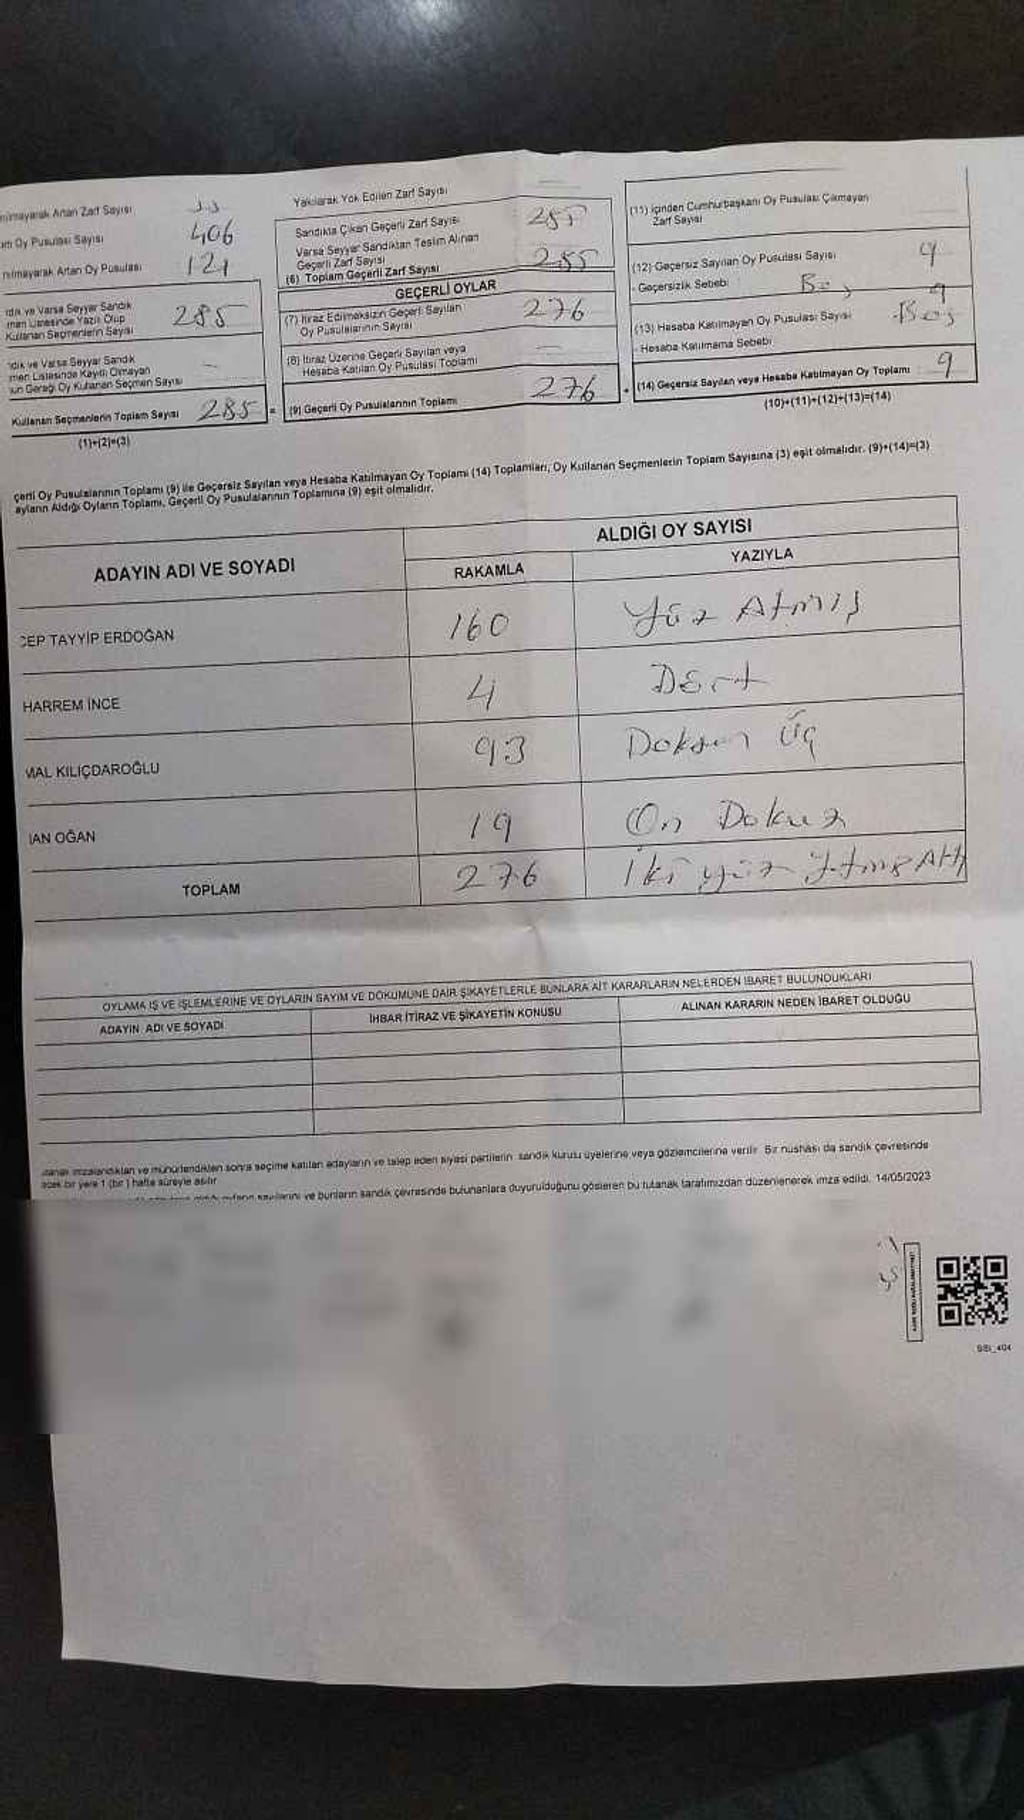 Artan Zarf Sayısı
Oy Pusulası Sayısı 406
Artan Oy Pusulası 121
ve Varsa Seyyar Sandık
Üzerinde Yazılı Olup
Kullanan Seçmenlerin Sayısı 285
ve Varsa Seyyar Sandık
Listesinde Kayıtlı Olmayan
Gereği Oy Kullanan Seçmen Sayısı -
Kullanan Seçmenlerin Toplam Sayısı 285 =
(1)+(2)=(3)
Yakılarak Yok Edilen Zarf Sayısı
Sandıkta Çıkan Geçerli Zarf Sayısı 285
Varsa Seyyar Sandıktan Teslim Alınan
Geçerli Zarf Sayısı
(6) Toplam Geçerli Zarf Sayısı 285
GEÇERLİ OYLAR
(7) İtiraz Edilmeksizin Geçerli Sayılan
Oy Pusulalarının Sayısı 276
(8) İtiraz Üzerine Geçerli Sayılan veya
Hesaba Katılan Oy Pusulası Toplamı -
(9) Geçerli Oy Pusulalarının Toplamı 276 +
(11) İçinden Cumhurbaşkanı Oy Pusulası Çıkmayan
Zarf Sayısı
(12) Geçersiz Sayılan Oy Pusulası Sayısı 9
- Geçersizlik Sebebi Boş
(13) Hesaba Katılmayan Oy Pusulası Sayısı 9
- Hesaba Katılmama Sebebi Boş
(14) Geçersiz Sayılan veya Hesaba Katılmayan Oy Toplamı 9
(10)+(11)+(12)+(13)=(14)
Oy Pusulalarının Toplamı (9) ile Geçersiz Sayılan veya Hesaba Katılmayan Oy Toplamı (14) Toplamları, Oy Kullanan Seçmenlerin Toplam Sayısına (3) eşit olmalıdır. (9)+(14)=(3)
Aldığı Oyların Toplamı, Geçerli Oy Pusulalarının Toplamına (9) eşit olmalıdır.
ADAYIN ADI VE SOYADI ALDIĞI OY SAYISI
RAKAMLA YAZIYLA
CEP TAYYİP ERDOĞAN 160 Yüz Atmış
HARREM İNCE 4 Dört
MAL KILIÇDAROĞLU 93 Doksan Üç
AN OĞAN 19 On Dokuz
TOPLAM 276 İki yüz Yetmiş Altı
OYLAMA İŞ VE İŞLEMLERİNE VE OYLARIN SAYIM VE DÖKÜMÜNE DAİR ŞİKAYETLERLE BUNLARA AİT KARARLARIN NELERDEN İBARET BULUNDUKLARI
ADAYIN ADI VE SOYADI İHBAR İTİRAZ VE ŞİKAYETİN KONUSU ALINAN KARARIN NEDEN İBARET OLDUĞU
imzalandıktan ve mühürlendikten sonra seçime katılan adayların ve talep eden siyasi partilerin sandık kurulu üyelerine veya gözlemcilerine verilir. Bir nüshası da sandık çevresinde
bir yere 1 (bir) hafta süreyle asılır
sayılarını ve bunların sandık çevresinde bulunanlara duyurulduğunu gösteren bu tutanak tarafımızdan düzenlenerek imza edildi. 14/05/2023